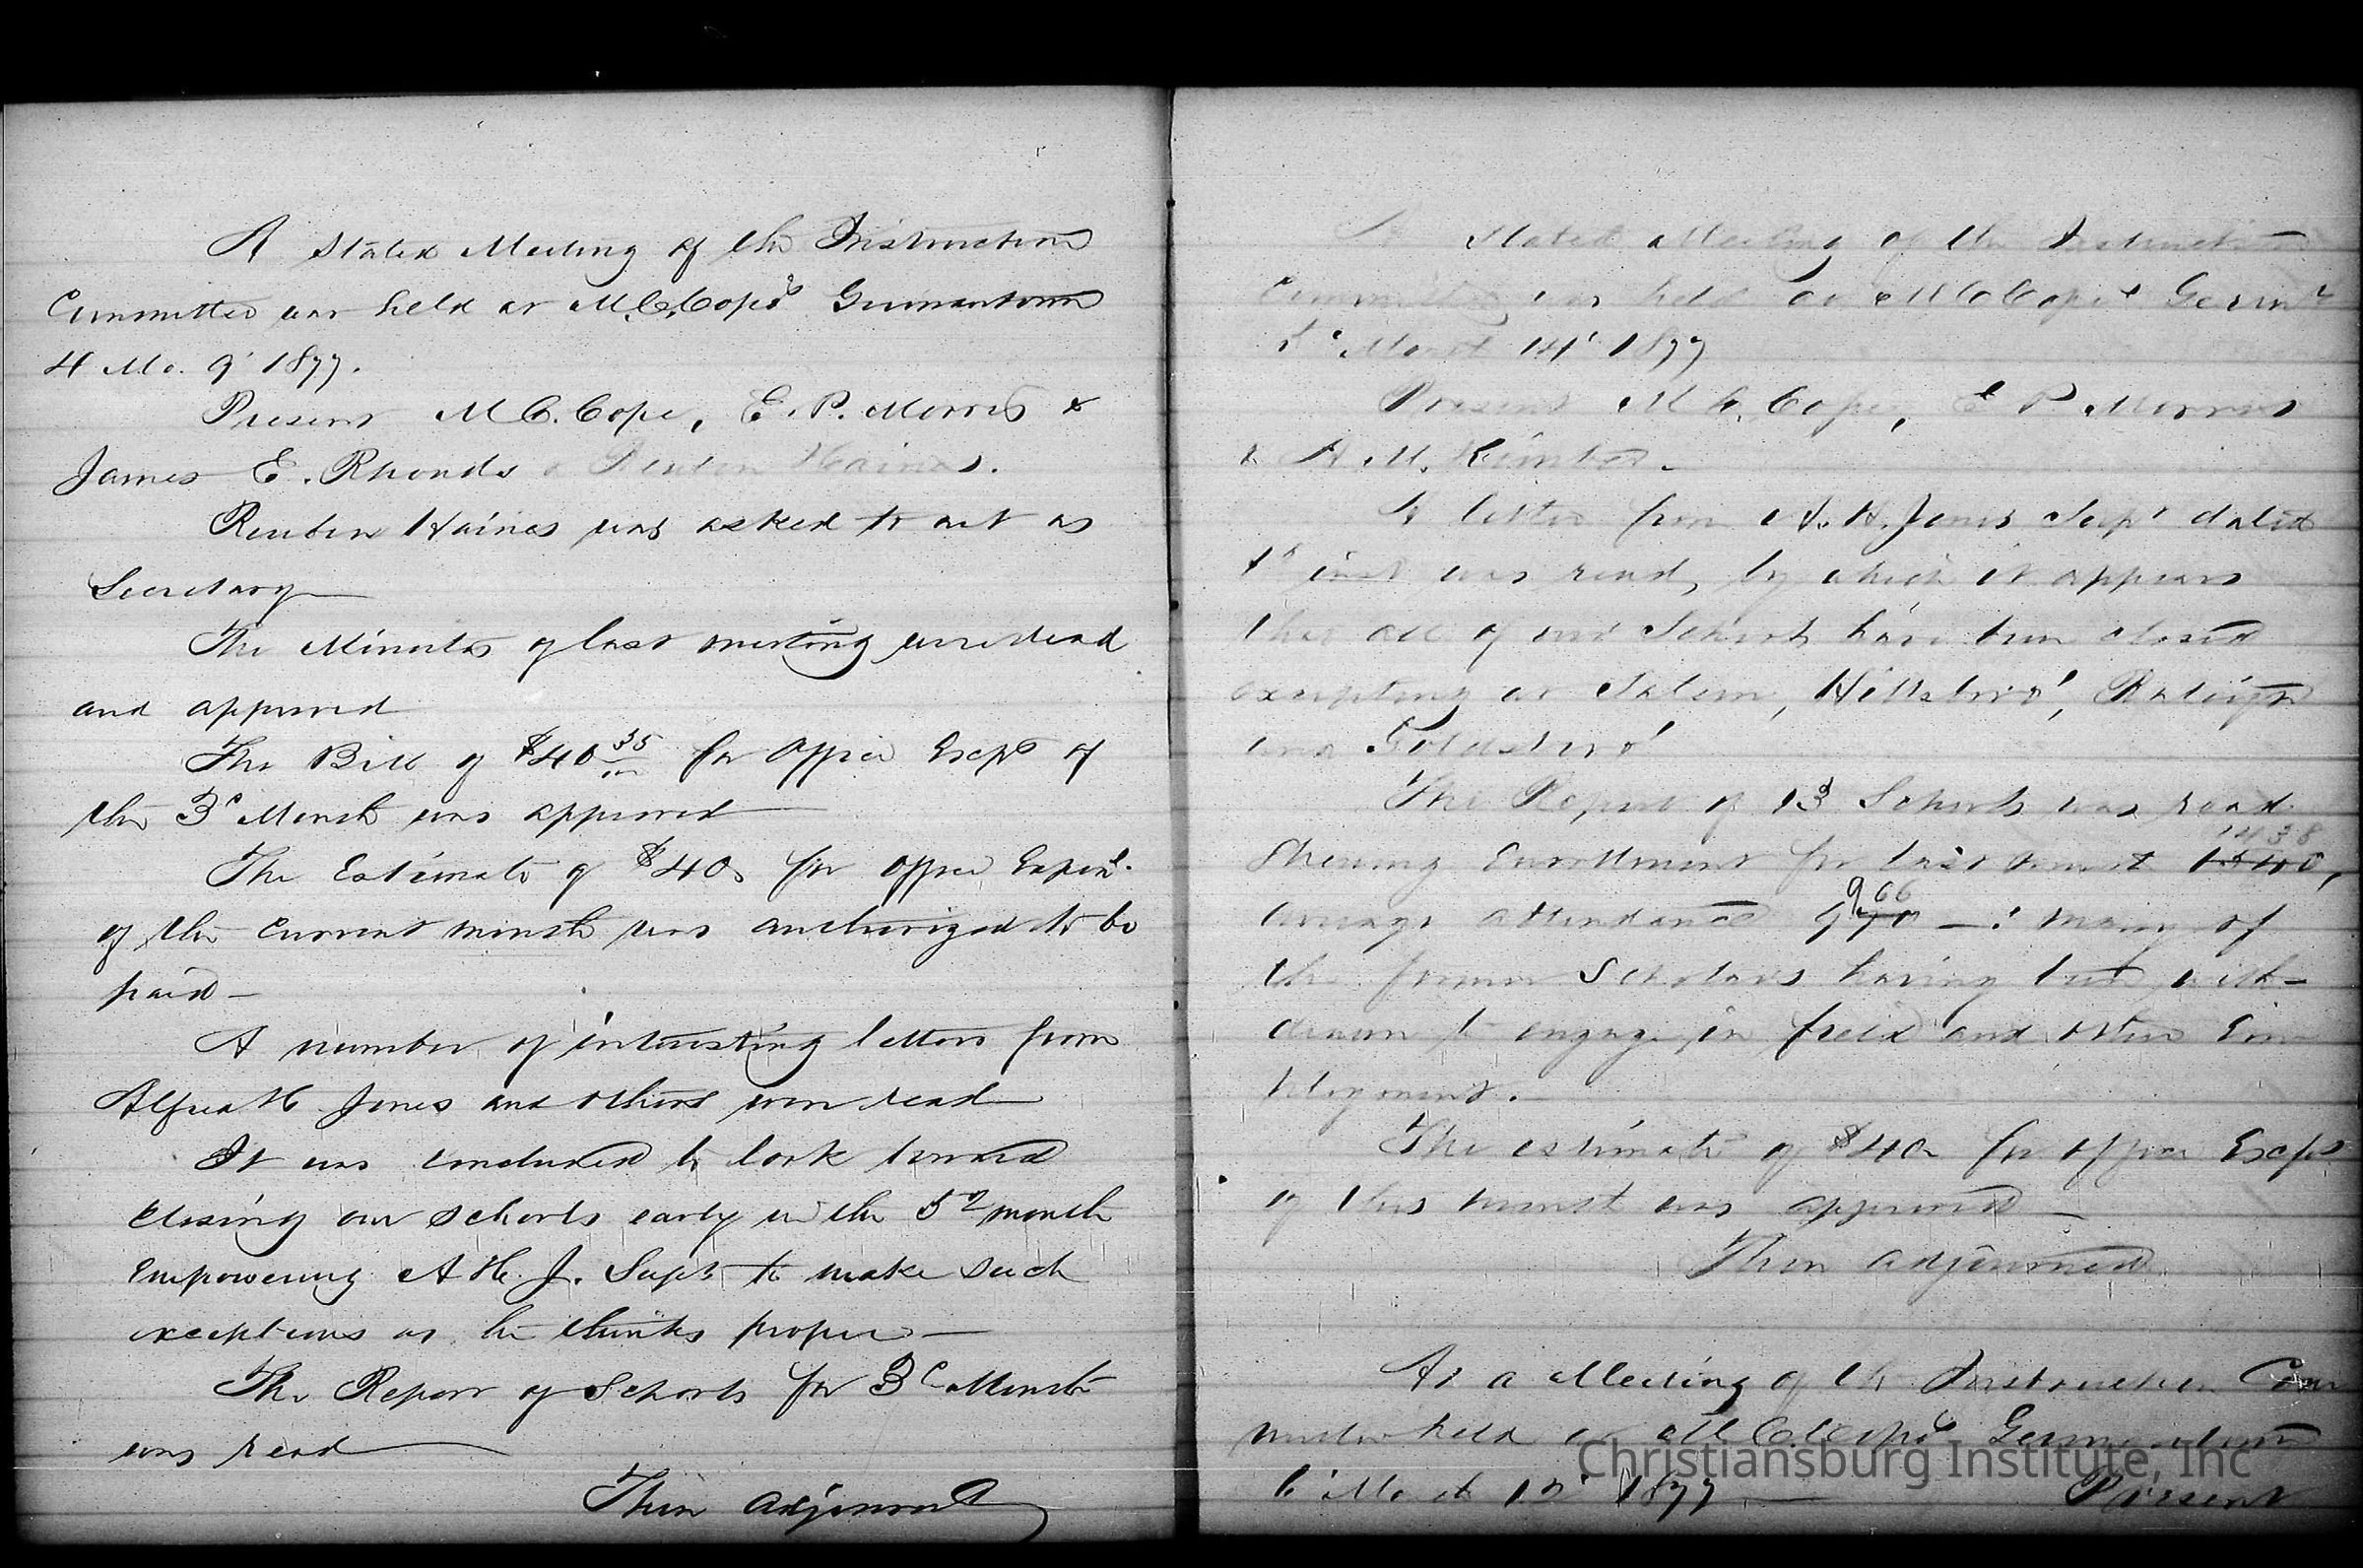 A Stated Meeting of the Instruction
Committee was held at M.C. Cope's Germantown
4 Mo. 9' 1877.
Present M C. Cope, E. P. Morris &
James E. Rhoads & Reuben Haines.
Reuben Haines was asked to act as
Secretary
The Minutes of last meeting were read
and approved
The Bill of $40 35/100 for Office Exps of
the 3d Month was approved
The Estimate of $40 for office Expens.
of the current month was authorized to be
paid—
A number of interesting letters from
Alfred H Jones and others were read
It was concluded to look toward
closing our schools early in the 5th month
Empowering A H. J. Supt to make such
exceptions as he thinks proper—
The Report of Schools for 3d Month
was read
Then adjourned
A Stated Meeting of the Instruction
Committee was held at M C Cope's Germt
5' Month 14' 1877
Present M C. Cope, E P Morris
& A M. Kimber.
A letter from A. H. Jones Supt dated
inst was read, by which it appears
that all of our Schools have been closed
excepting at Salem, Hillsboro', Raleigh
and Goldsboro'
The Report of 13 Schools was read
Shewing Enrollment for last month 1540, 1438
average attendance 970 966 —: many of
the former Scholars having been with-
drawn to engage in field and other Em
ployment.—
The estimate of $40 for office Exps
of this month was approved—
Then adjourned
At a Meeting of the Instruction Com
mittee held at M C. Cope's Germantown
6' Month 1877 Present
Christiansburg Institute, Inc